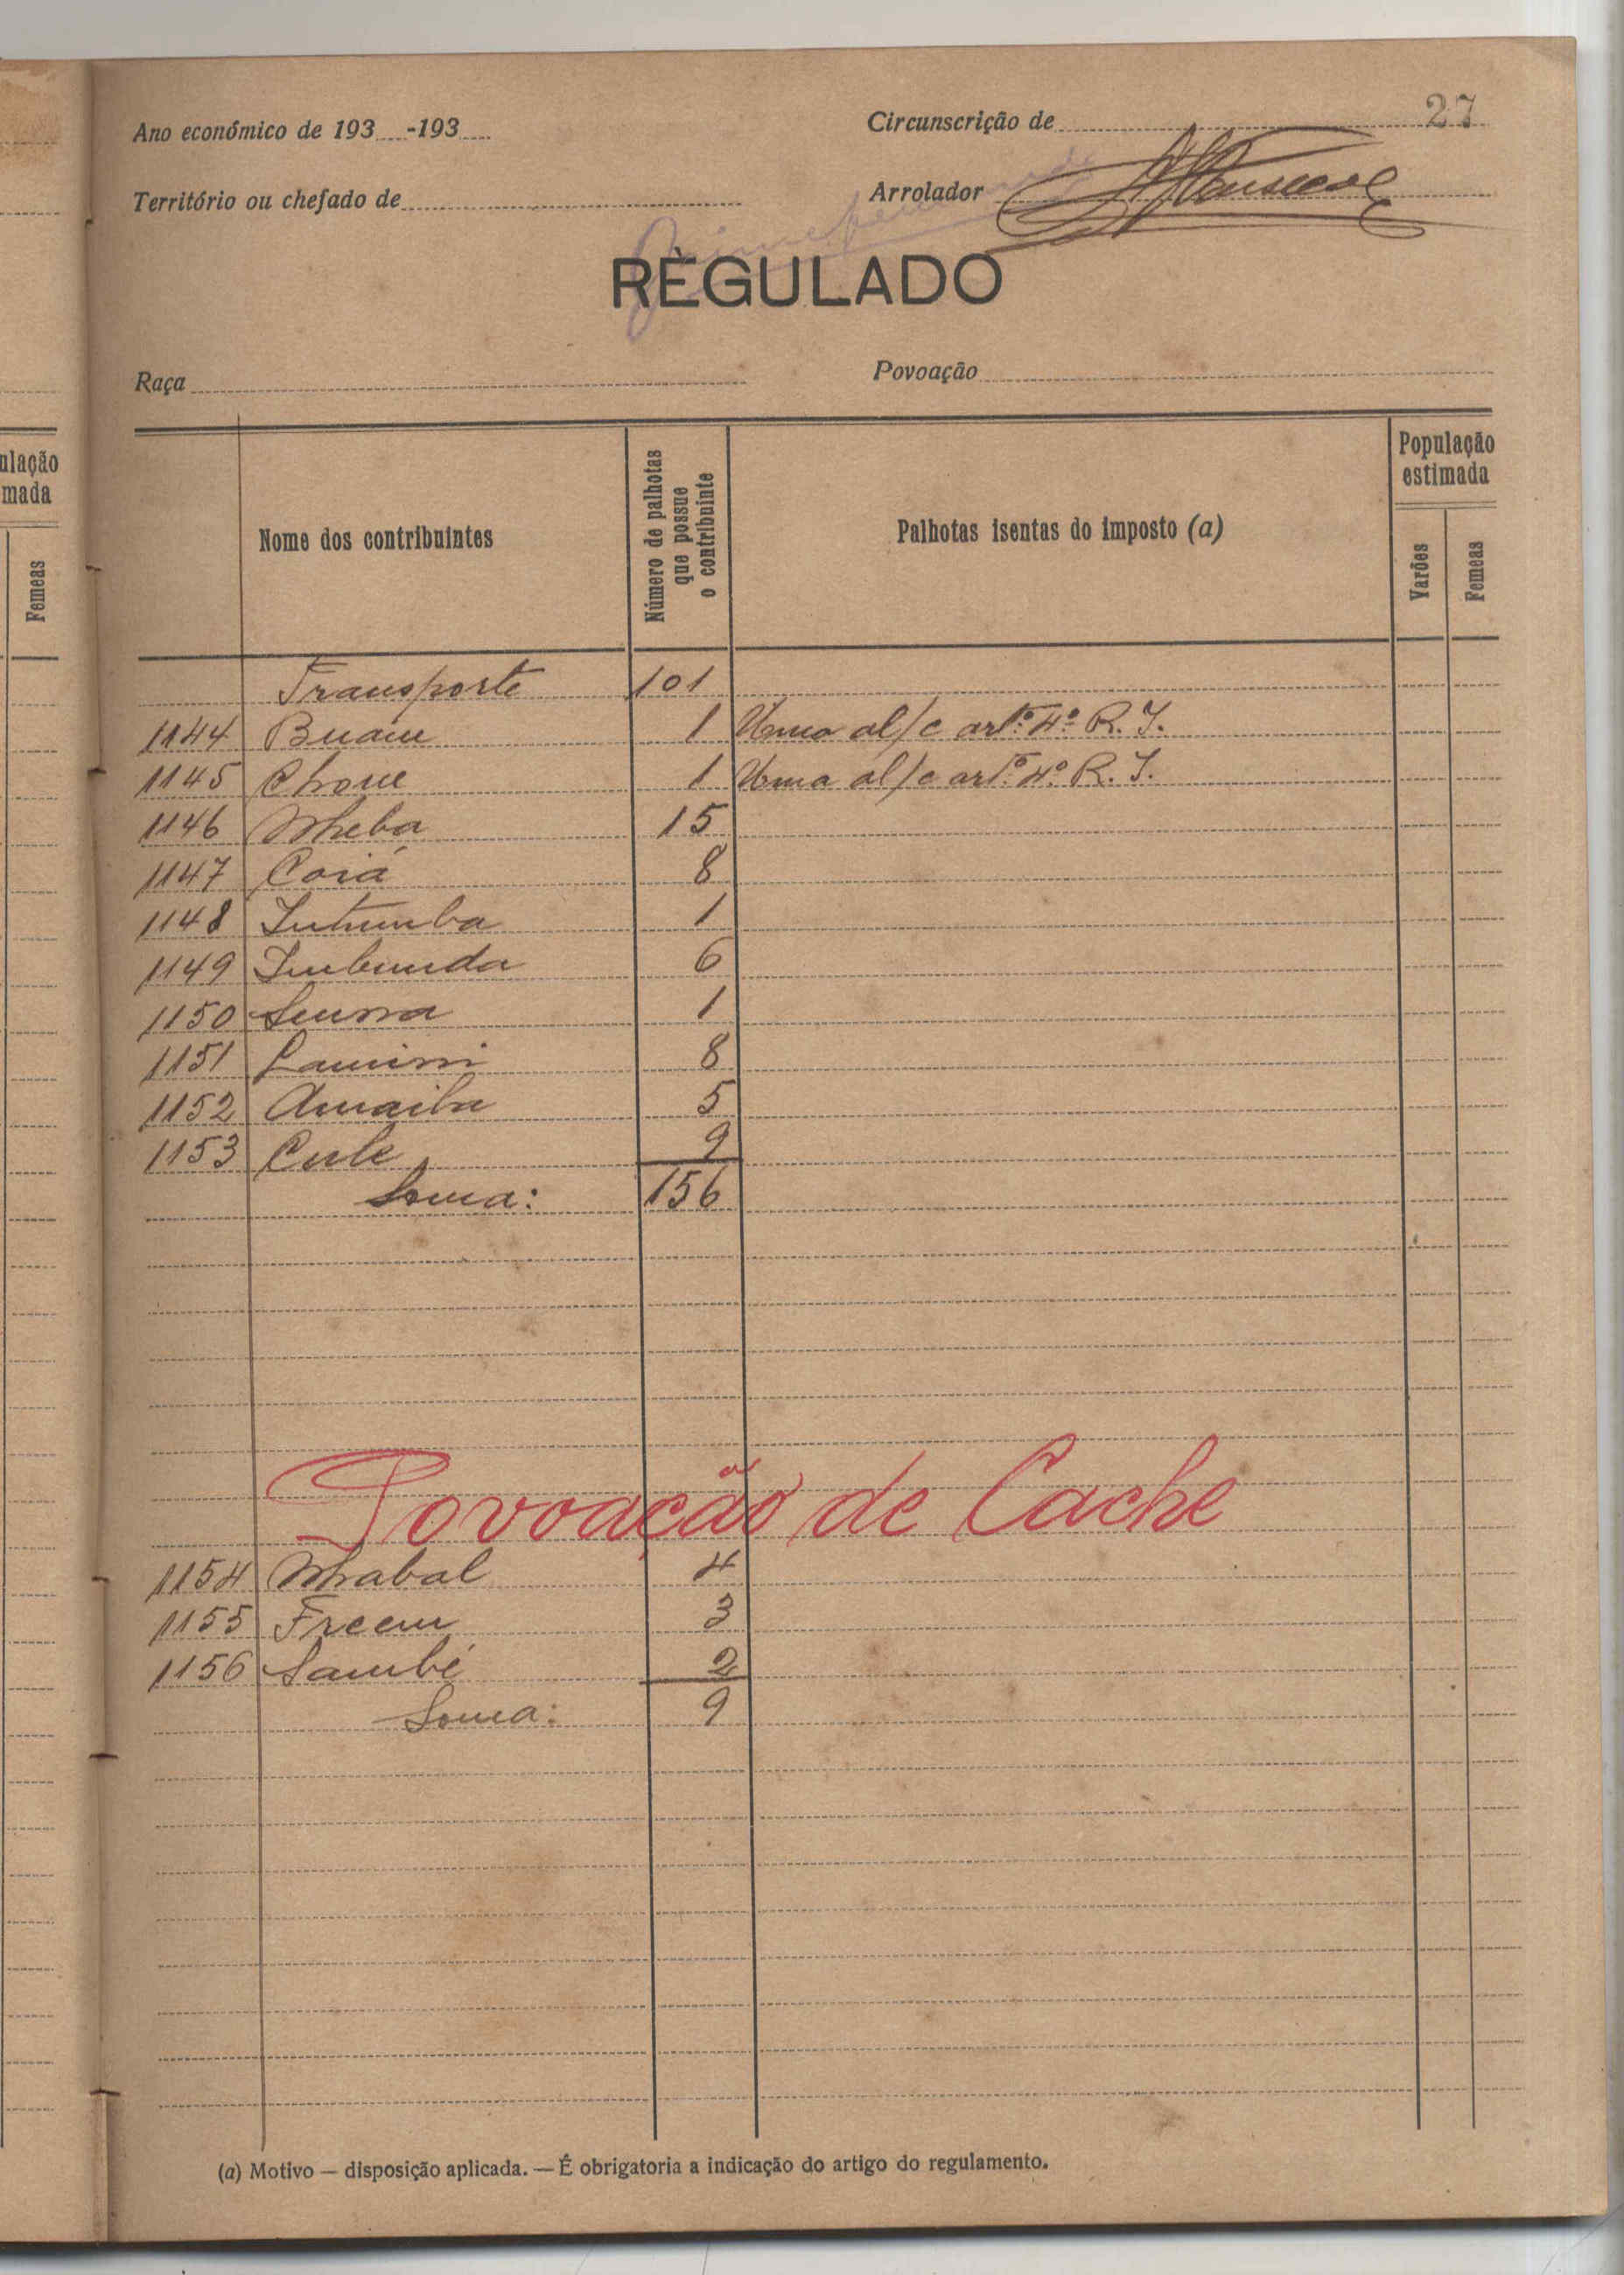 27
Ano económico de 193 -193
Circunscrição de
Território ou chefado de
Arrolador
REGULADO
Raça
Povoação
ulação
mada
Femeas
Nome dos contribuintes
Número de palhotas
que possue
o contribuinte
Palhotas isentas do imposto (a)
População
estimada
Varões
Femeas
Transporte 101
1144 Buam 1 Uma al/c artº 4º R. I.
1145 Chone 1 Uma al/c artº 4º R. I.
1146 Mheba 15
1147 Coiá 8
1148 Intumba 1
1149 Imbunda 6
1150 1
1151 Lamini 8
1152 Amaiba 5
1153 Cule 9
Soma: 156
Povoação de Cache
1154 Mhabal 4
1155 3
1156 Sambé 2
Soma: 9
(a) Motivo — disposição aplicada. — É obrigatoria a indicação do artigo do regulamento.